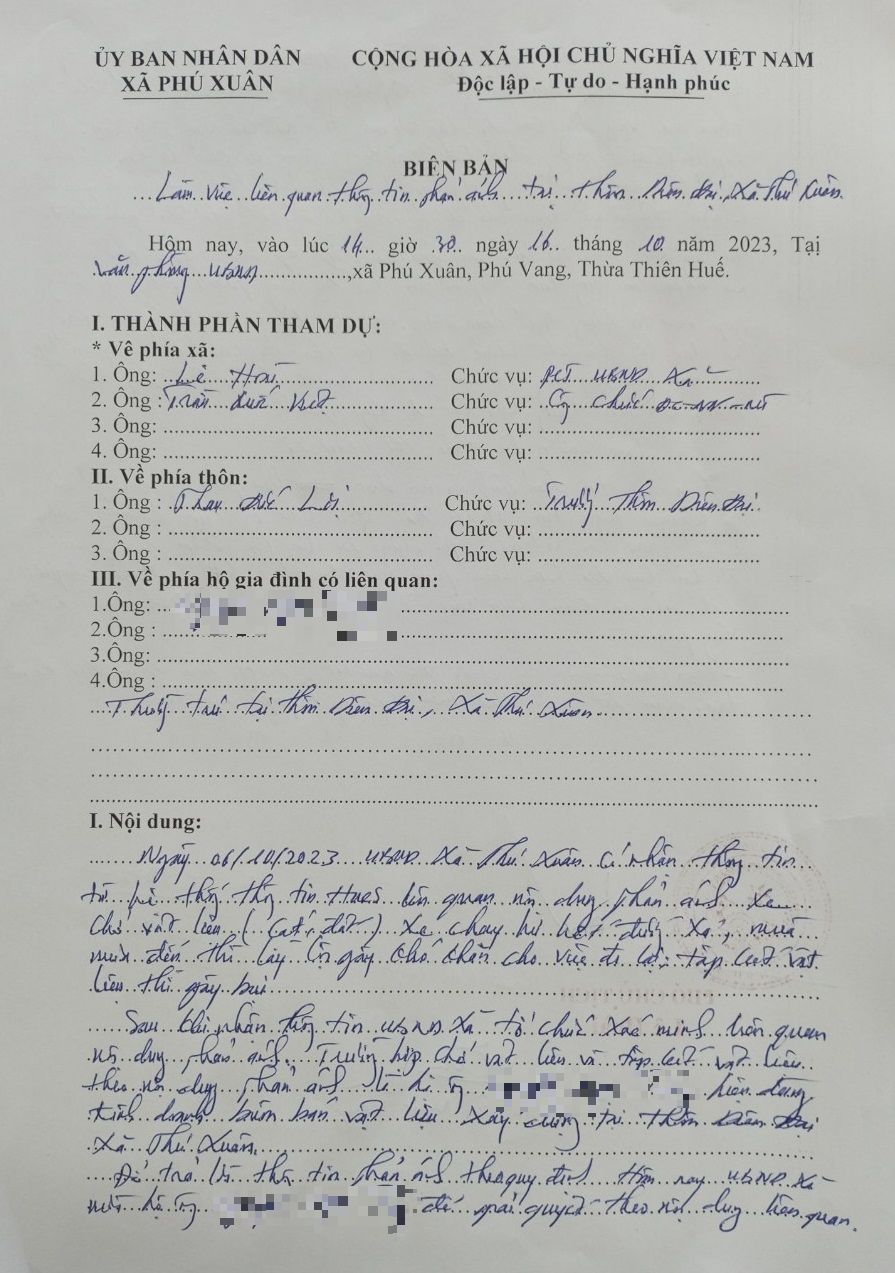 ỦY BAN NHÂN DÂN CỘNG HÒA XÃ HỘI CHỦ NGHĨA VIỆT NAM
XÃ PHÚ XUÂN Độc lập - Tự do - Hạnh phúc
BIÊN BẢN
Làm việc liên quan thông tin phản ánh tại thôn Diên Đại, Xã Phú Xuân
Hôm nay, vào lúc 14 giờ 30 ngày 16 tháng 10 năm 2023, Tại
Văn phòng UBND, xã Phú Xuân, Phú Vang, Thừa Thiên Huế.
I. THÀNH PHẦN THAM DỰ:
* Về phía xã:
1. Ông: Lê Chức vụ: PCT UBND Xã
2. Ông : Trần Chức vụ: Công chức ĐC-NN-MT
3. Ông: Chức vụ:
4. Ông: Chức vụ:
II. Về phía thôn:
1. Ông : Phan Đức Lợi Chức vụ: Trưởng Thôn Diên Đại
2. Ông : Chức vụ:
3. Ông : Chức vụ:
III. Về phía hộ gia đình có liên quan:
1.Ông:
2.Ông :
3.Ông:
4.Ông :
Thường trú tại thôn Diên Đại, Xã Phú Xuân
I. Nội dung:
Ngày 06/10/2023 UBND Xã Phú Xuân có nhận thông tin
từ hệ thống thông tin HueS liên quan nội dung phản ánh xe
chở vật liệu (cát, đất) xe chạy hư hết đường xá, mùa
mưa đến thì lầy lội gây khó khăn cho việc đi lại, tập kết vật
liệu thì gây bụi
Sau khi nhận thông tin UBND Xã tổ chức xác minh liên quan
nội dung phản ánh. Trường hợp chở vật liệu và tập kết vật liệu
theo nội dung phản ánh là hộ ông hiện đang
kinh doanh buôn bán vật liệu xây dựng tại thôn Diên Đại
Xã Phú Xuân.
Để trả lời thông tin phản ánh theo quy định Hôm nay UBND Xã
mời hộ ông để giải quyết theo nội dung liên quan.